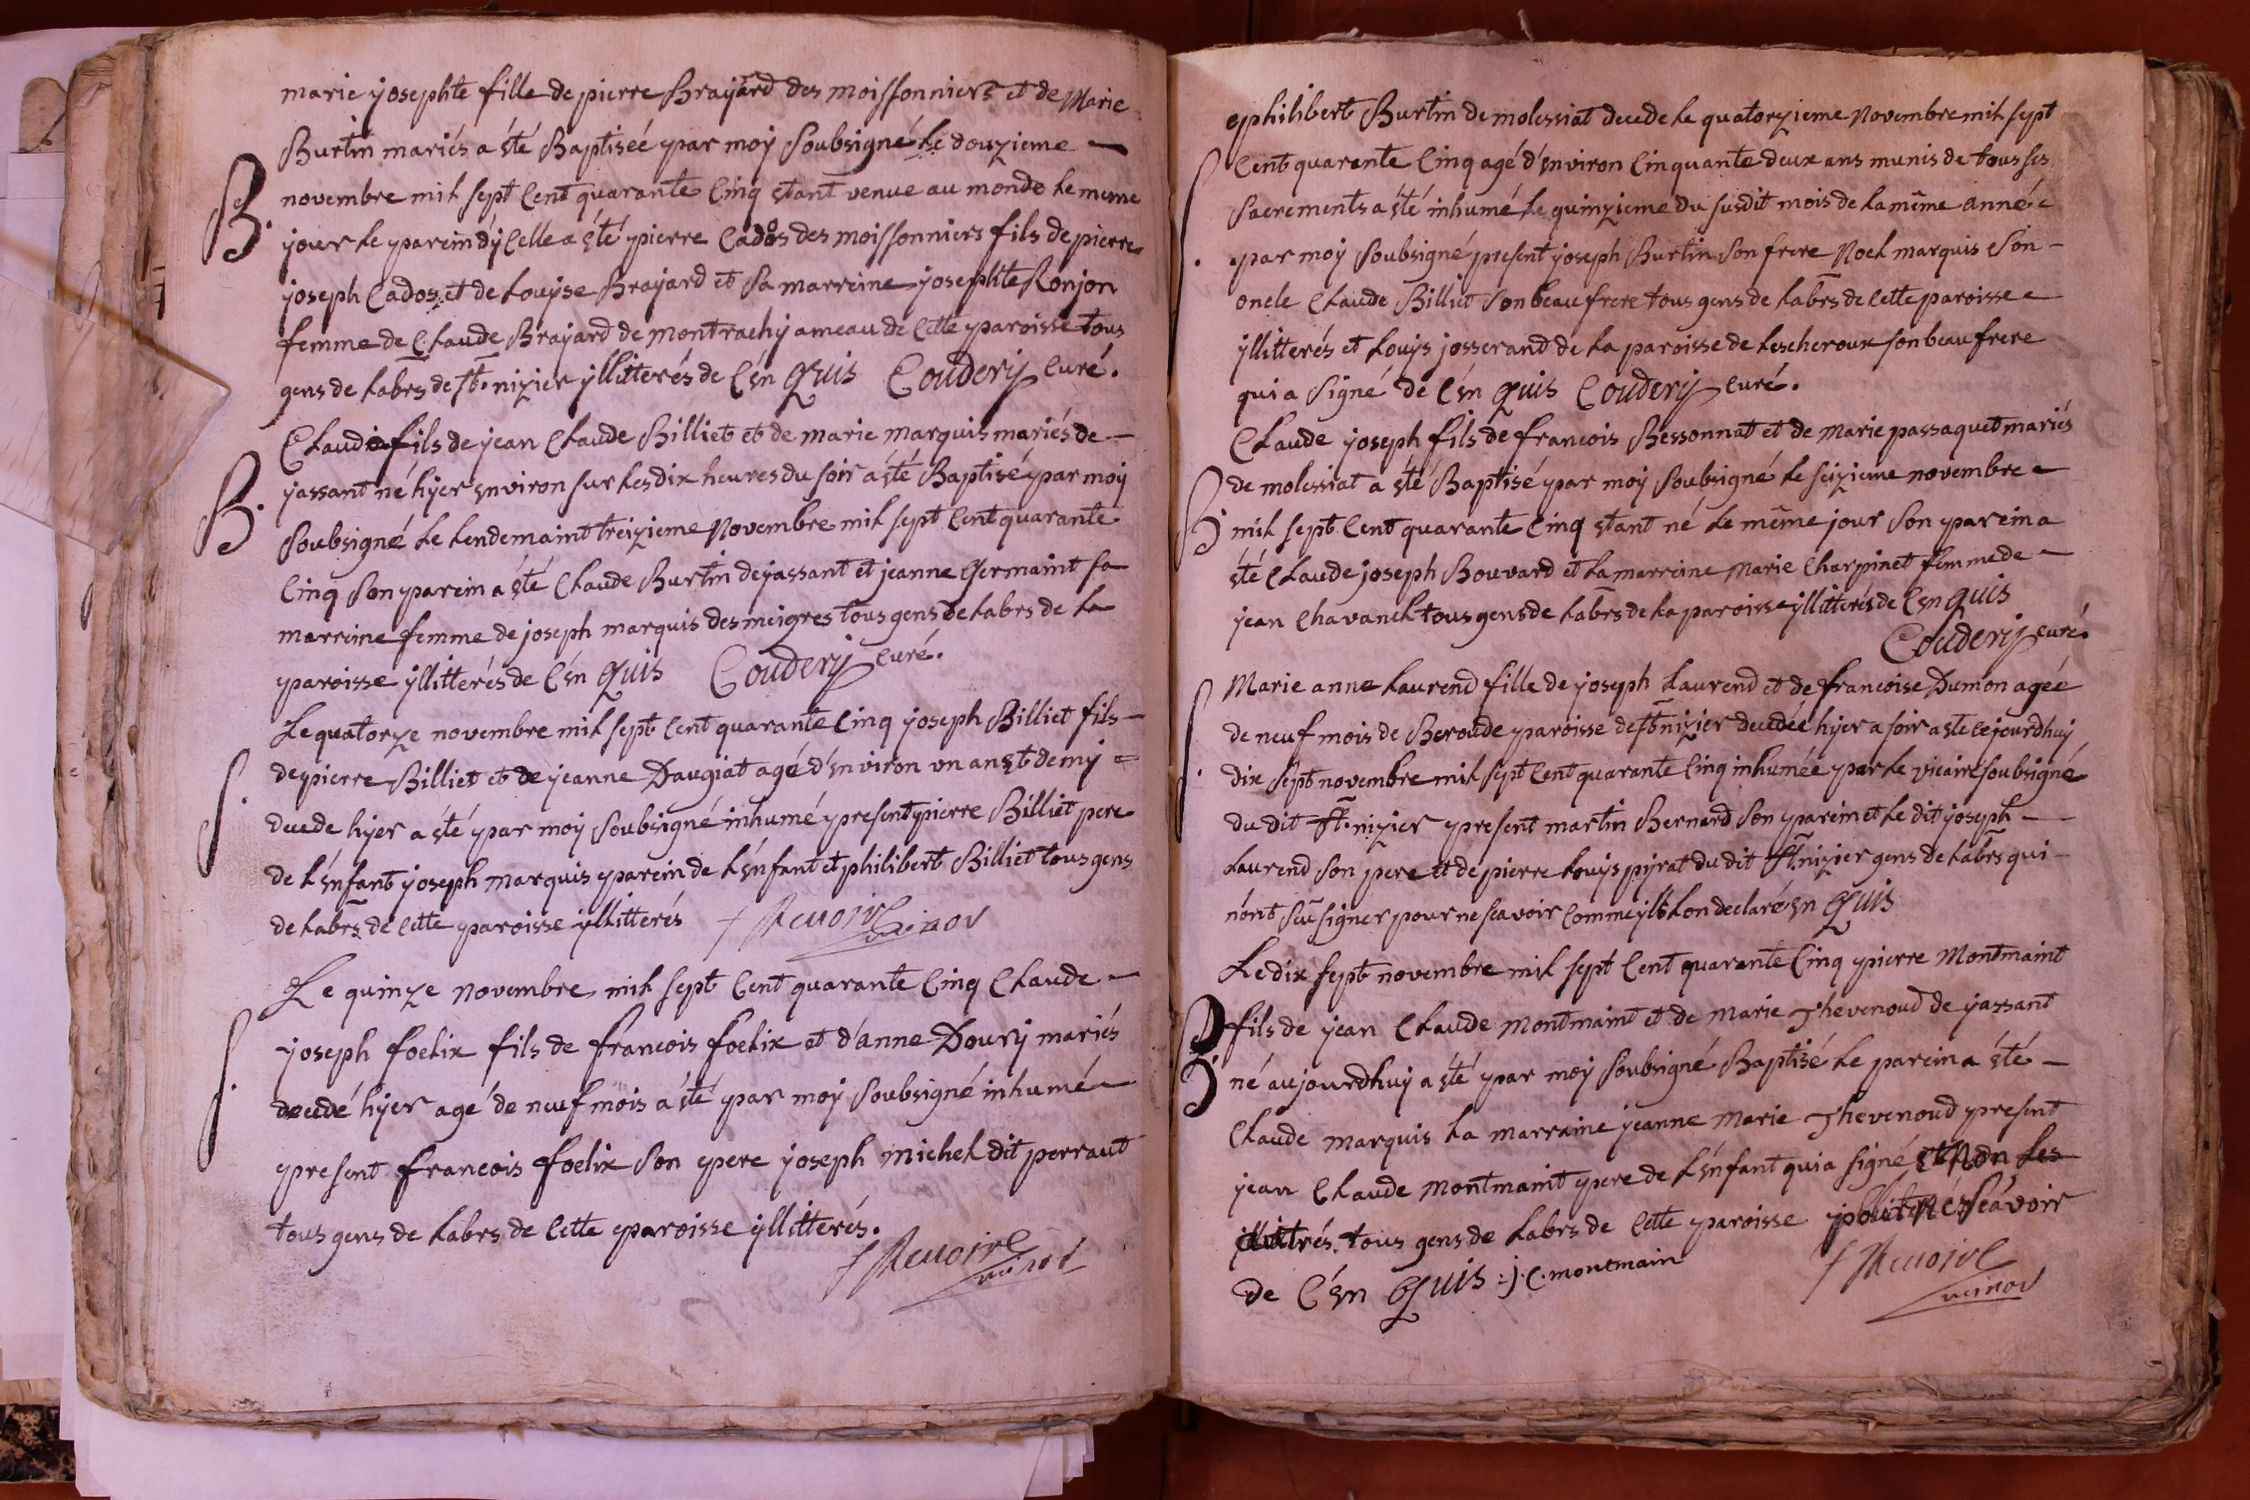 marie josephte fille de pierre Brayard des moissonniers et de Marie
Burtin mariés a été Baptiséé par moy Soubsigné le douzieme
B. novembre mil sept Cent quarante Cinq etant venue au monde le meme
jour le parein dÿcelle a été pierre Cados des moissonniers fils de pierre
joseph Cados et de Louyse Brayard et Sa marreine josephte Ronjon
femme de Claude Brayard de montrachy ameau de Cette paroisse tous
gens de Labrs de St. nizier ÿllitterés de C'én Quis Coudery Curé.
Claude fils de jean Claude Billiet et de marie marquis mariés de
B. jassant né hÿer environ sur les dix heures du soir a été Baptisé par moy
Soubsigné le Lendemaint treizieme Novembre mil sept Cent quarante
Cinq Son parein a été Claude Burtin de jassant et jeanne Germaint sa
marreine femme de joseph marquis des meigres tous gens de Labrs de La
paroisse ÿllitterés de C'én Quis Coudery Curé.
Le quatorze novembre mil sept Cent quarante Cinq joseph Billiet fils
S. de pierre Billiet et de jeanne Daugiat agé d'environ un an et demy
decede hÿer a été par moy Soubsigné inhumé present pierre Billiet pere
de L'énfant joseph marquis parein de L'énfant et philibert Billiet tous gens
de Labrs de Cette paroisse ÿllitterés
Le quinze Novembre mil sept Cent quarante Cinq Claude
S. joseph foelix fils de francois foelix et d'anne Doury mariés
decedé hÿer agé de neuf mois a été par moy Soubsigné inhumé
present francois foelix Son pere joseph michel dit perraut
tous gens de Labrs de Cette paroisse ÿllitterés.
philibert Burtin de molessiat decede le quatorzieme Novembre mil sept
S. Cent quarante Cinq agé d'environ Cinquante deux ans munis de tous ses
Sacrements a été inhumé le quinzieme du susdit mois de la même année
par moy Soubsigné present joseph Burtin Son frere Noel marquis Son
oncle Claude Billiet Son beau frere tous gens de Labrs de Cette paroisse
ÿllitterés et Louys josserand de La paroisse de Lescheroux son beau frere
qui a Signé de C'én Quis Coudery Curé.
Claude joseph fils de francois Bessonnat et de Marie passaquet mariés
B. de molessiat a été Baptisé par moy Soubsigné le seizieme novembre
mil sept Cent quarante Cinq etant né le même jour Son parein a
été Claude joseph Bouvard et La marreine Marie Charpinet femme de
jean Chavanel tous gens de Labrs de La paroisse ÿllitterés de C'én Quis
Coudery Curé.
S. Marie anne Laurend fille de joseph Laurend et de francoise Dumon agéé
de neuf mois de Beroude paroisse de St. nizier decedée hÿer a soir a ete cejourdhuy
dix sept novembre mil sept Cent quarante Cinq inhumée par le vicaire soubsigné
du dit St. nizier present martin Bernard Son parein et le dit joseph
Laurend Son pere et de pierre Louys pyrat du dit St. nizier gens de Labrs qui
n'ont sçu signer pour ne scavoir Comme ÿls Lon declaré én Quis
Le dix sept novembre mil sept Cent quarante Cinq pierre Montmaint
B. fils de jean Claude Montmaint et de Marie Thevenoud de jassant
né aujourdhuy a été par moy Soubsigné Baptisé le parein a été
Claude marquis La marraine jeanne Marie Thevenoud present
jean Claude Montmaint pere de L'énfant qui a signé et Non Les
illitrés tous gens de Labrs de Cette paroisse pour ne sçavoir
de C'én Quis j. C. montmain